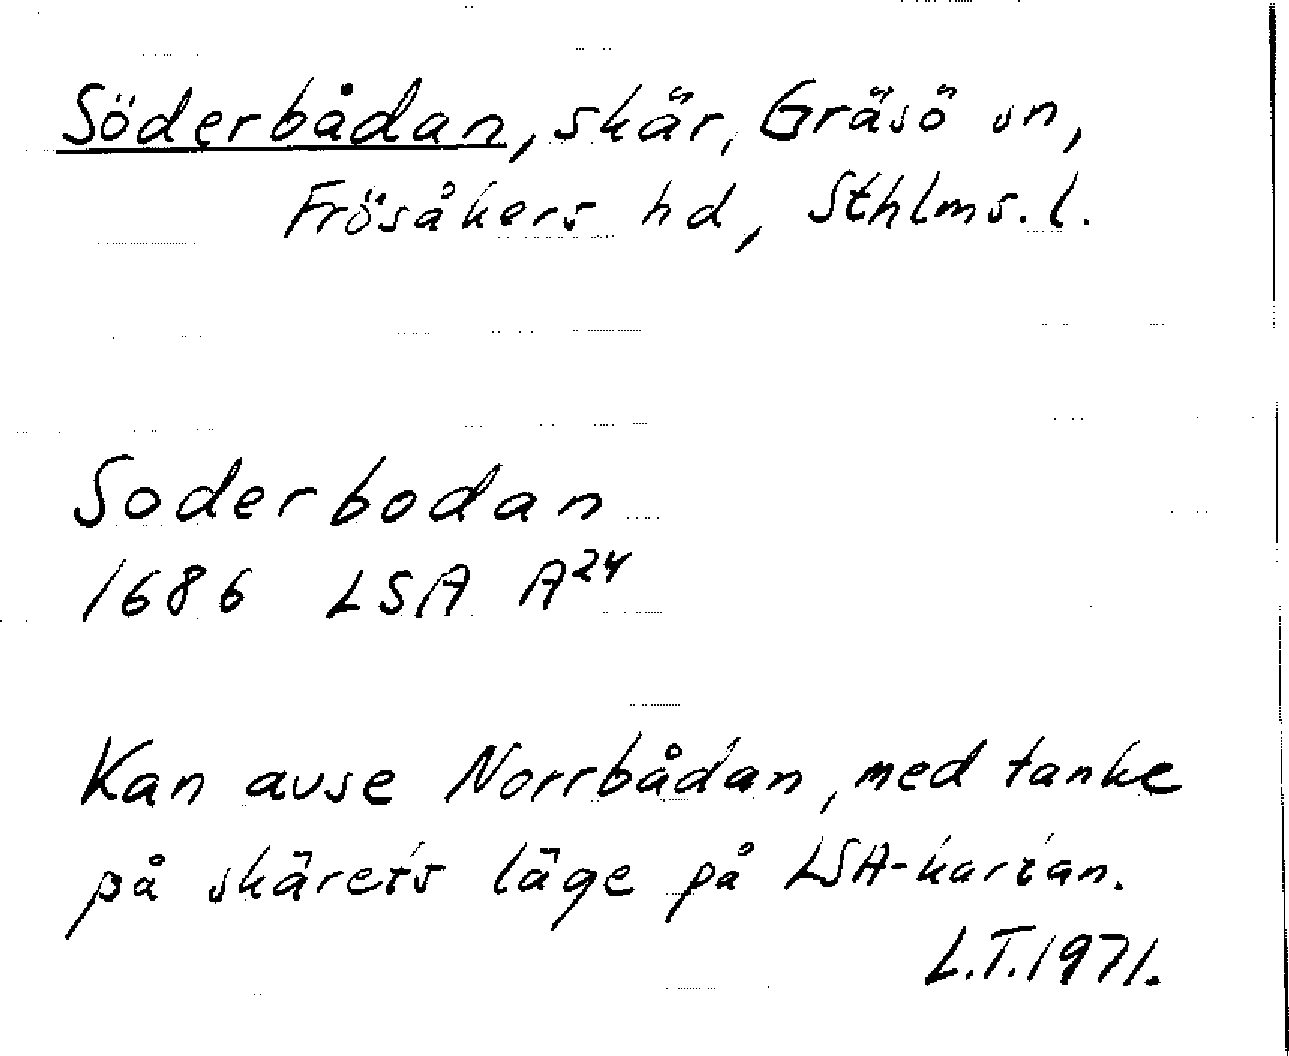 Söderbådan, skär, Gräsö sn,
Frösåkers hd, Sthlms. l.
Soderbodan
1686 LSA A²⁴
Kan avse Norrbådan, med tanke
på skärets läge på LSA-kartan.
L.T. 1971.